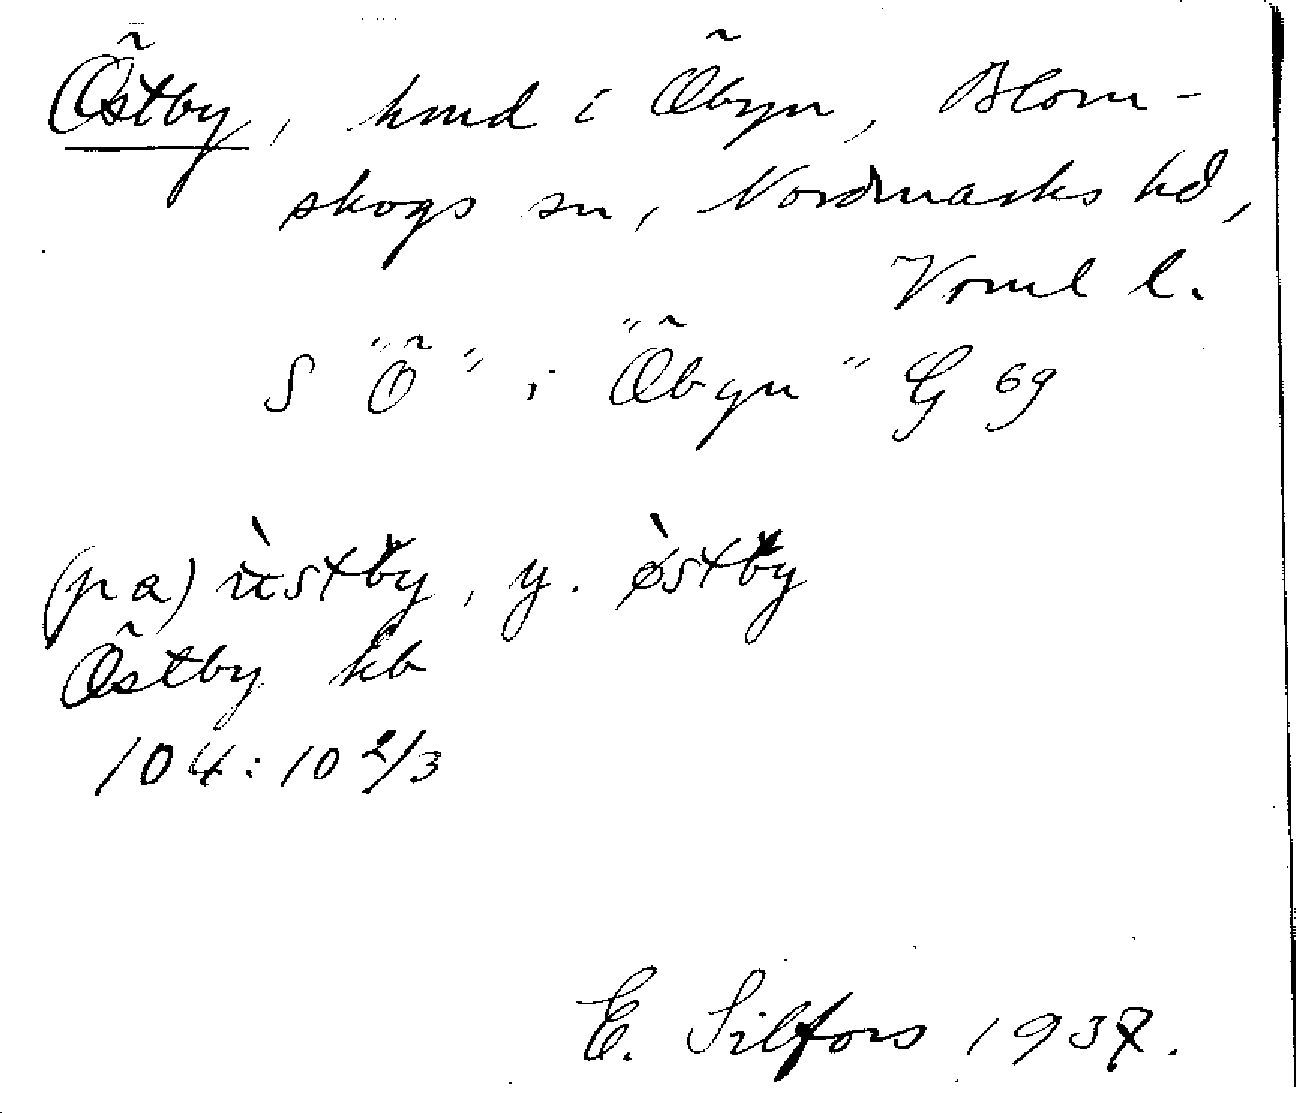 Östby, hmd i Öbyn, Blom-
skogs sn, Nordmarks hd,
Vrml l.
S "Ö" i "Öbyn" G 69
(pa) östby, y. östby
Östby kb
104:10 2/3
E. Silfors 1937.